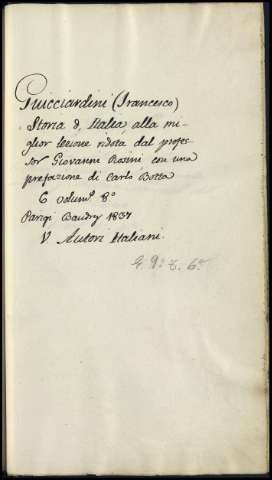 Guicciardini (Francesco)
Storia d'Italia, alla mi-
glior lezione ridota dal profes-
sor Giovanni Rosini con una
prefazione di Carlo Botta
6 volumi 8°
Parigi Baudry 1837
V Autori Italiani.